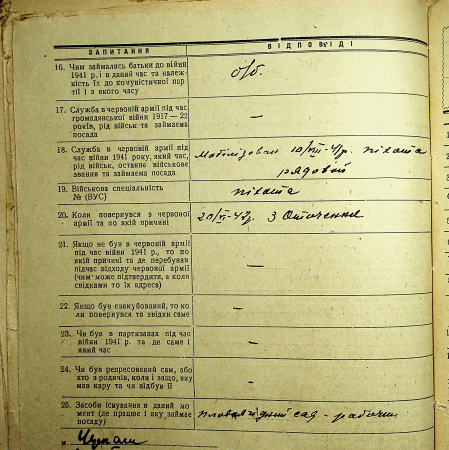 ЗАПИТАННЯ ВІДПОВІДІ
16. Чим займались батьки до війни
1941 р. і в даний час та належ-
ність їх до комуністичної пар-
тії і з якого часу
б/б.
17. Служба в червоній армії під час
громадянської війни 1917—22
років, рід військ та займаєма
посада
—
18. Служба в червоній армії під
час війни 1941 року, який час,
рід військ, останнє військове
звання та займаєма посада
Мобілізован 10/VII-41р. піхота
рядовой
19. Військова спеціальність
№ (ВУС)
піхота
20. Коли повернувся з червоної
армії та по якій причині
З Оточення
21. Якщо не був в червоній армії
під час війни 1941 р., то по
якій причині та де перебував
під час відходу червоної армії
(чим може підтвердити, а коли
свідками то їх адреса)
—
22. Якщо був евакуйований, то ко-
ли повернувся та звідки саме
—
23. Чи був в партизанах під час
війни 1941 р. та де саме і
який час
—
24. Чи був репресований сам, або
хто з родичів, коли і защо, яку
мав кару та чи відбув її
—
25. Засоби існування в даний мо-
мент (де працює і яку займає
посаду)
сад - рабочий
м.